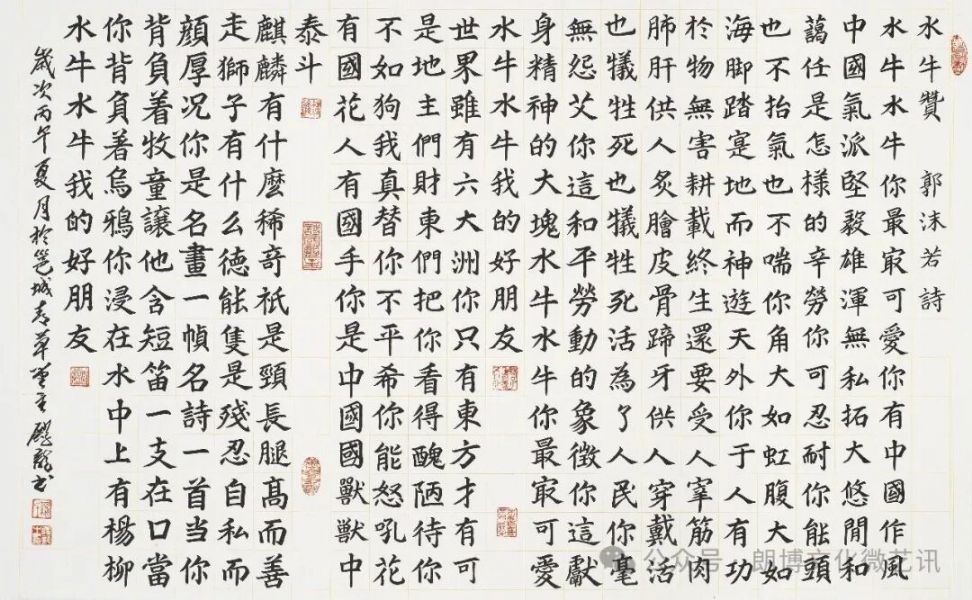 水牛贊 郭沫若詩
水牛水牛你最冣可愛你有中國作風
中國氣派堅毅雄渾無私拓大悠閒和
藹任是怎樣的辛勞你可忍耐你能頭
也不抬氣也不喘你角大如虹腹大如
海脚踏寔地而神遊天外你于人有功
於物無害耕載終生還要受人宰筋肉
肺肝供人炙膾皮骨蹄牙供人穿戴活
也犧牲死也犧牲死活為了人民你毫
無怨艾你這和平勞動的象徵你這獻
身精神的大塊水牛水牛你最冣可愛
水牛水牛我的好朋友
世界雖有六大洲你只有東方才有可
是地主們財東們把你看得醜陋待你
不如狗我真替你不平希你能怒吼花
有國花人有國手你是中國國獸獸中
泰斗
麒麟有什麼稀奇衹是頸長腿高而善
走獅子有什么德能隻是殘忍自私而
顏厚况你是名畫一幀名詩一首当你
背負着牧童讓他含短笛一支在口當
你背負著烏鴉你浸在水中上有楊柳
水牛水牛我的好朋友
歲次丙午夏月於邕城草堂主书
公众号·朗博文化微艺讯